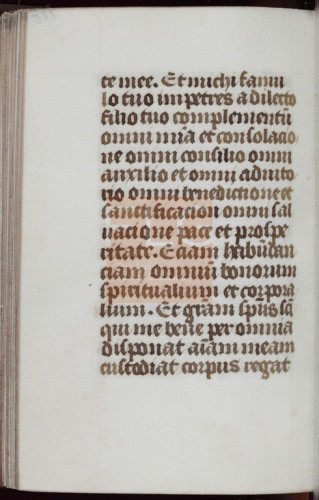 te mee. Et michi famu
lo tuo impetres a dilecto
filio tuo complementū
omni mīa et consolacio
ne omni consilio omni
auxilio et omni adiuto
rio omni benedictione et
sanctificacion omni sal
uacione pace et prospe
ritate. Eciam habūdan
ciam omniū bonorum
spiritualium et corpora
lium. Et grām spūs sā
qui me bene per omnia
disponat aīam meam
custodiat corpus regat